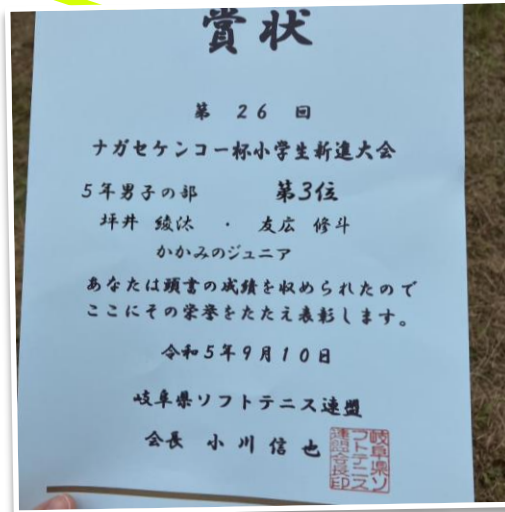 賞状
第 26 回
ナガセケンコー杯小学生新進大会
5年男子の部 第3位
坪井 綾汰 ・ 友広 修斗
かかみのジュニア
あなたは頭書の成績を収められたので
ここにその栄誉をたたえ表彰します。
令和5年9月10日
岐阜県ソフトテニス連盟
会長 小川信也
岐阜県ソ
フトテニス
連盟会長印